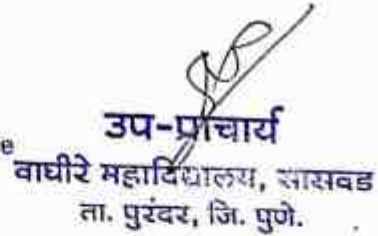 उप-प्राचार्य
e
वाघीरे महाविद्यालय, सासवड
ता. पुरंदर, जि. पुणे.